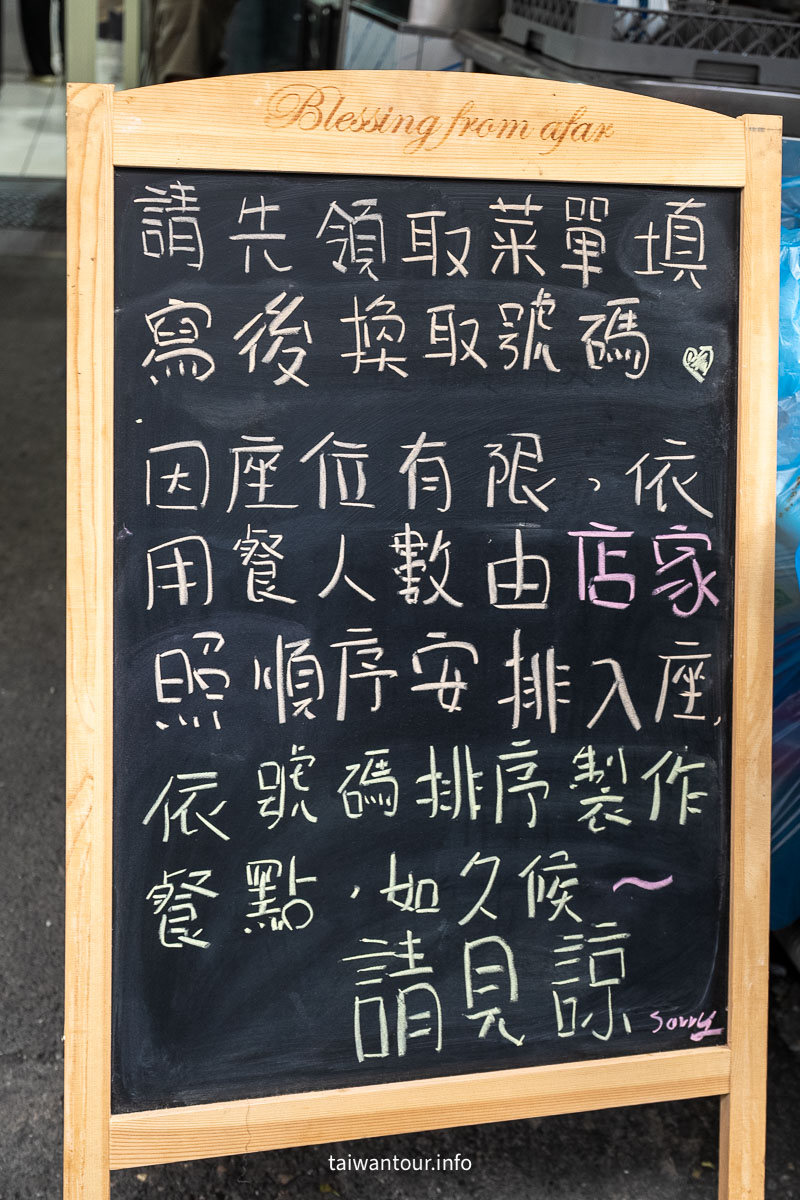 Blessing from afar
請先領取菜單填
寫後換取號碼
因座位有限,依
用餐人數由店家
照順序安排入座,
依號碼排序製作
餐點,如久候~
請見諒 sorry
taiwantour.info